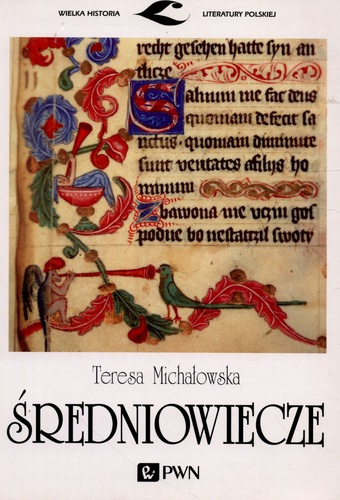 WIELKA HISTORIA LITERATURY POLSKIEJ
recht gesehen hatte syn an
tlicze
Saluum me fac deus
quoniam defecit sa
nctus · quoniam diminute
sunt veritates a filijs ho
minum
Zbawona me uczin gos
podne bo nestatczil swoty
Teresa Michałowska
ŚREDNIOWIECZE
PWN